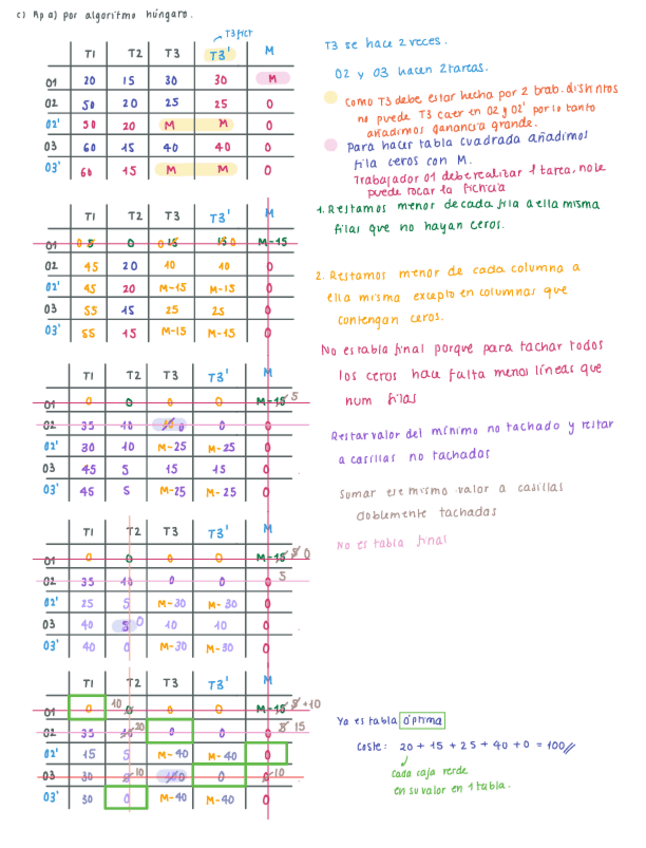 c) Rp a) por algoritmo húngaro.
T3 fict
T1 T2 T3 T3' M
O1 20 15 30 30 M
O2 50 20 25 25 0
O2' 50 20 M M 0
O3 60 15 40 40 0
O3' 60 15 M M 0
T3 se hace 2 veces.
O2 y O3 hacen 2 tareas.
Como T3 debe estar hecha por 2 trab. distintos
no puede T3 caer en O2 y O2' por lo tanto
añadimos ganancia grande.
Para hacer tabla cuadrada añadimos
fila ceros con M.
Trabajador O1 debe realizar 1 tarea, no le
puede tocar la ficticia
T1 T2 T3 T3' M
O1 0 5 0 0 15 15 0 M-15
O2 45 20 10 10 0
O2' 45 20 M-15 M-15 0
O3 55 15 25 25 0
O3' 55 15 M-15 M-15 0
1. Restamos menor de cada fila a ella misma
filas que no hayan ceros.
2. Restamos menor de cada columna a
ella misma excepto en columnas que
contengan ceros.
T1 T2 T3 T3' M
O1 0 0 0 0 M-15 5
O2 35 10 10 0 0 0
O2' 30 10 M-25 M-25 0
O3 45 5 15 15 0
O3' 45 5 M-25 M-25 0
No es tabla final porque para tachar todos
los ceros hace falta menos líneas que
num filas
Restar valor del mínimo no tachado y restar
a casillas no tachadas
Sumar ese mismo valor a casillas
doblemente tachadas
No es tabla final
T1 T2 T3 T3' M
O1 0 0 0 0 M-15 5 0
O2 35 10 0 0 0 5
O2' 25 5 M-30 M-30 0
O3 40 5 0 10 10 0
O3' 40 0 M-30 M-30 0
T1 T2 T3 T3' M
O1 0 10 0 0 0 M-15 5 +10
O2 35 10 20 0 0 5 15
O2' 15 5 M-40 M-40 0
O3 30 0 10 10 0 0 0 10
O3' 30 0 M-40 M-40 0
Ya es tabla óptima
Coste: 20 + 15 + 25 + 40 + 0 = 100//
Cada caja verde
en su valor en 1 tabla.